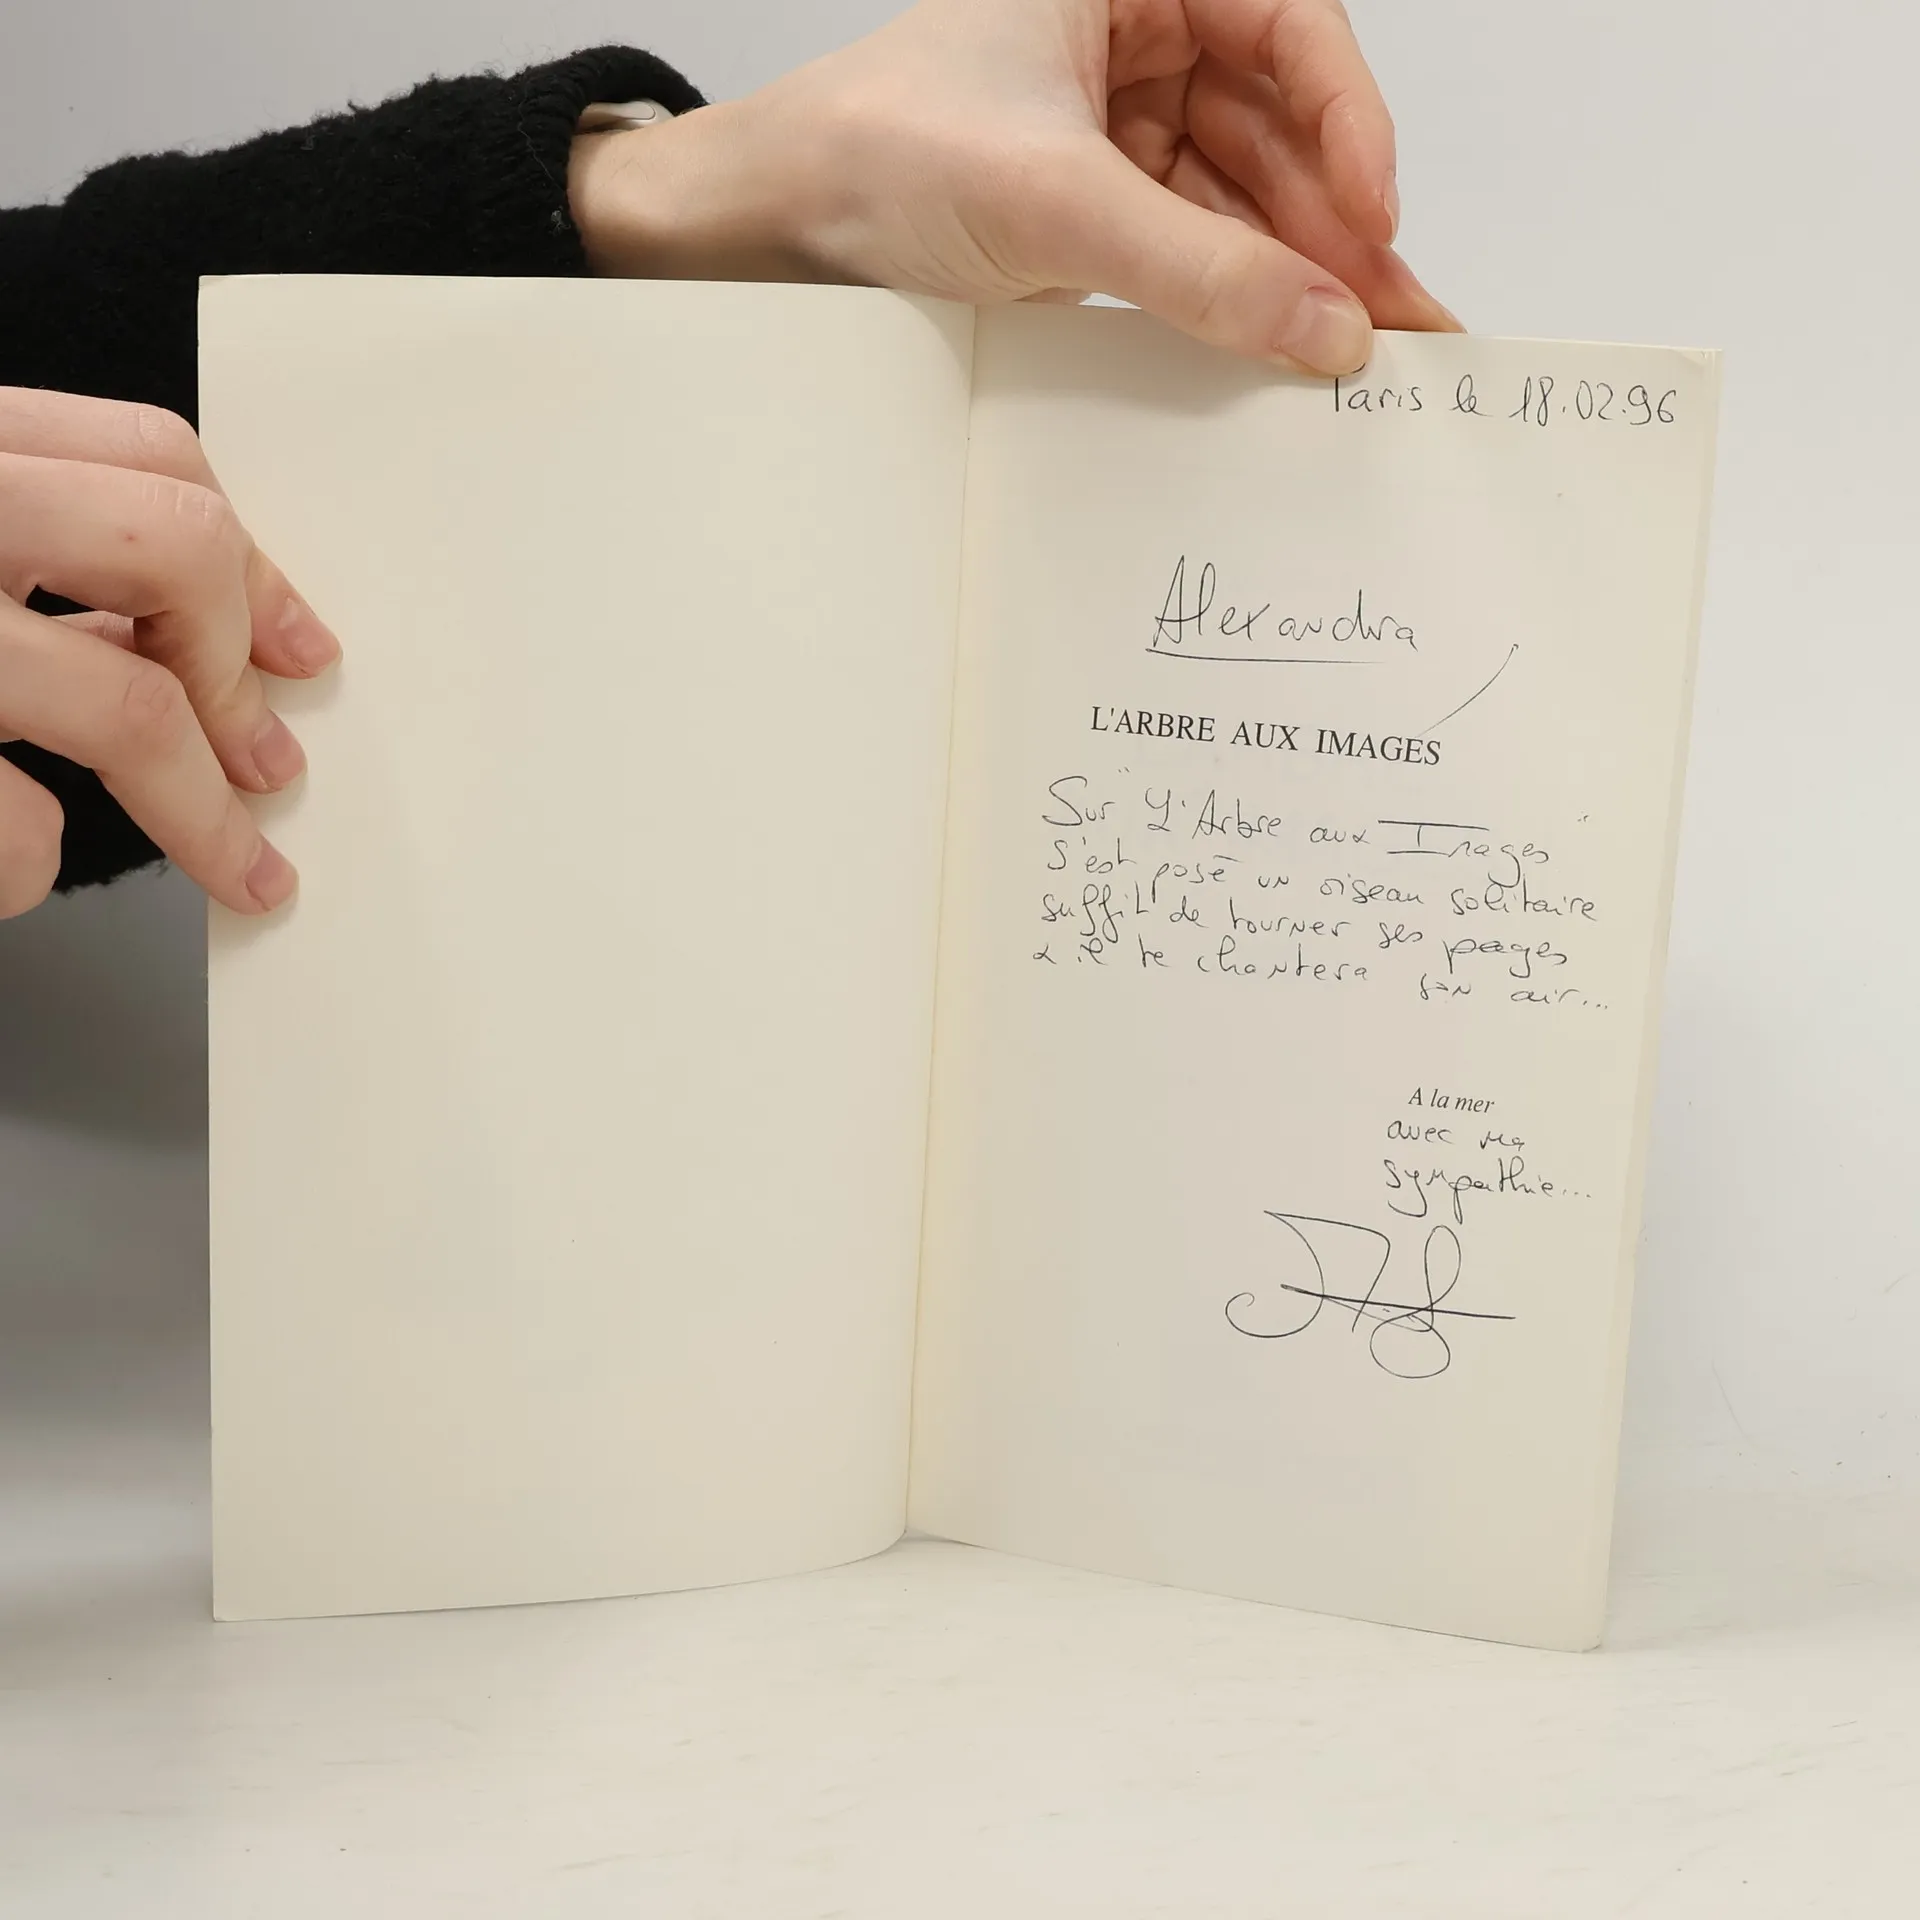 Paris le 18.02.96
Alexandra
L'ARBRE AUX IMAGES
Sur "L'Arbre aux Images"
s'est posé un oiseau solitaire
suffit de tourner ses pages
& il te chantera son air...
A la mer
avec ma
sympathie...